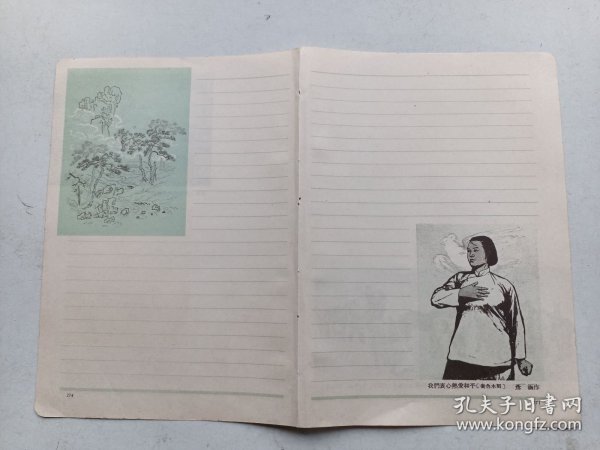 我們衷心熱愛和平(套色木刻) 燕 作
274
孔夫子旧书网
www.kongfz.com